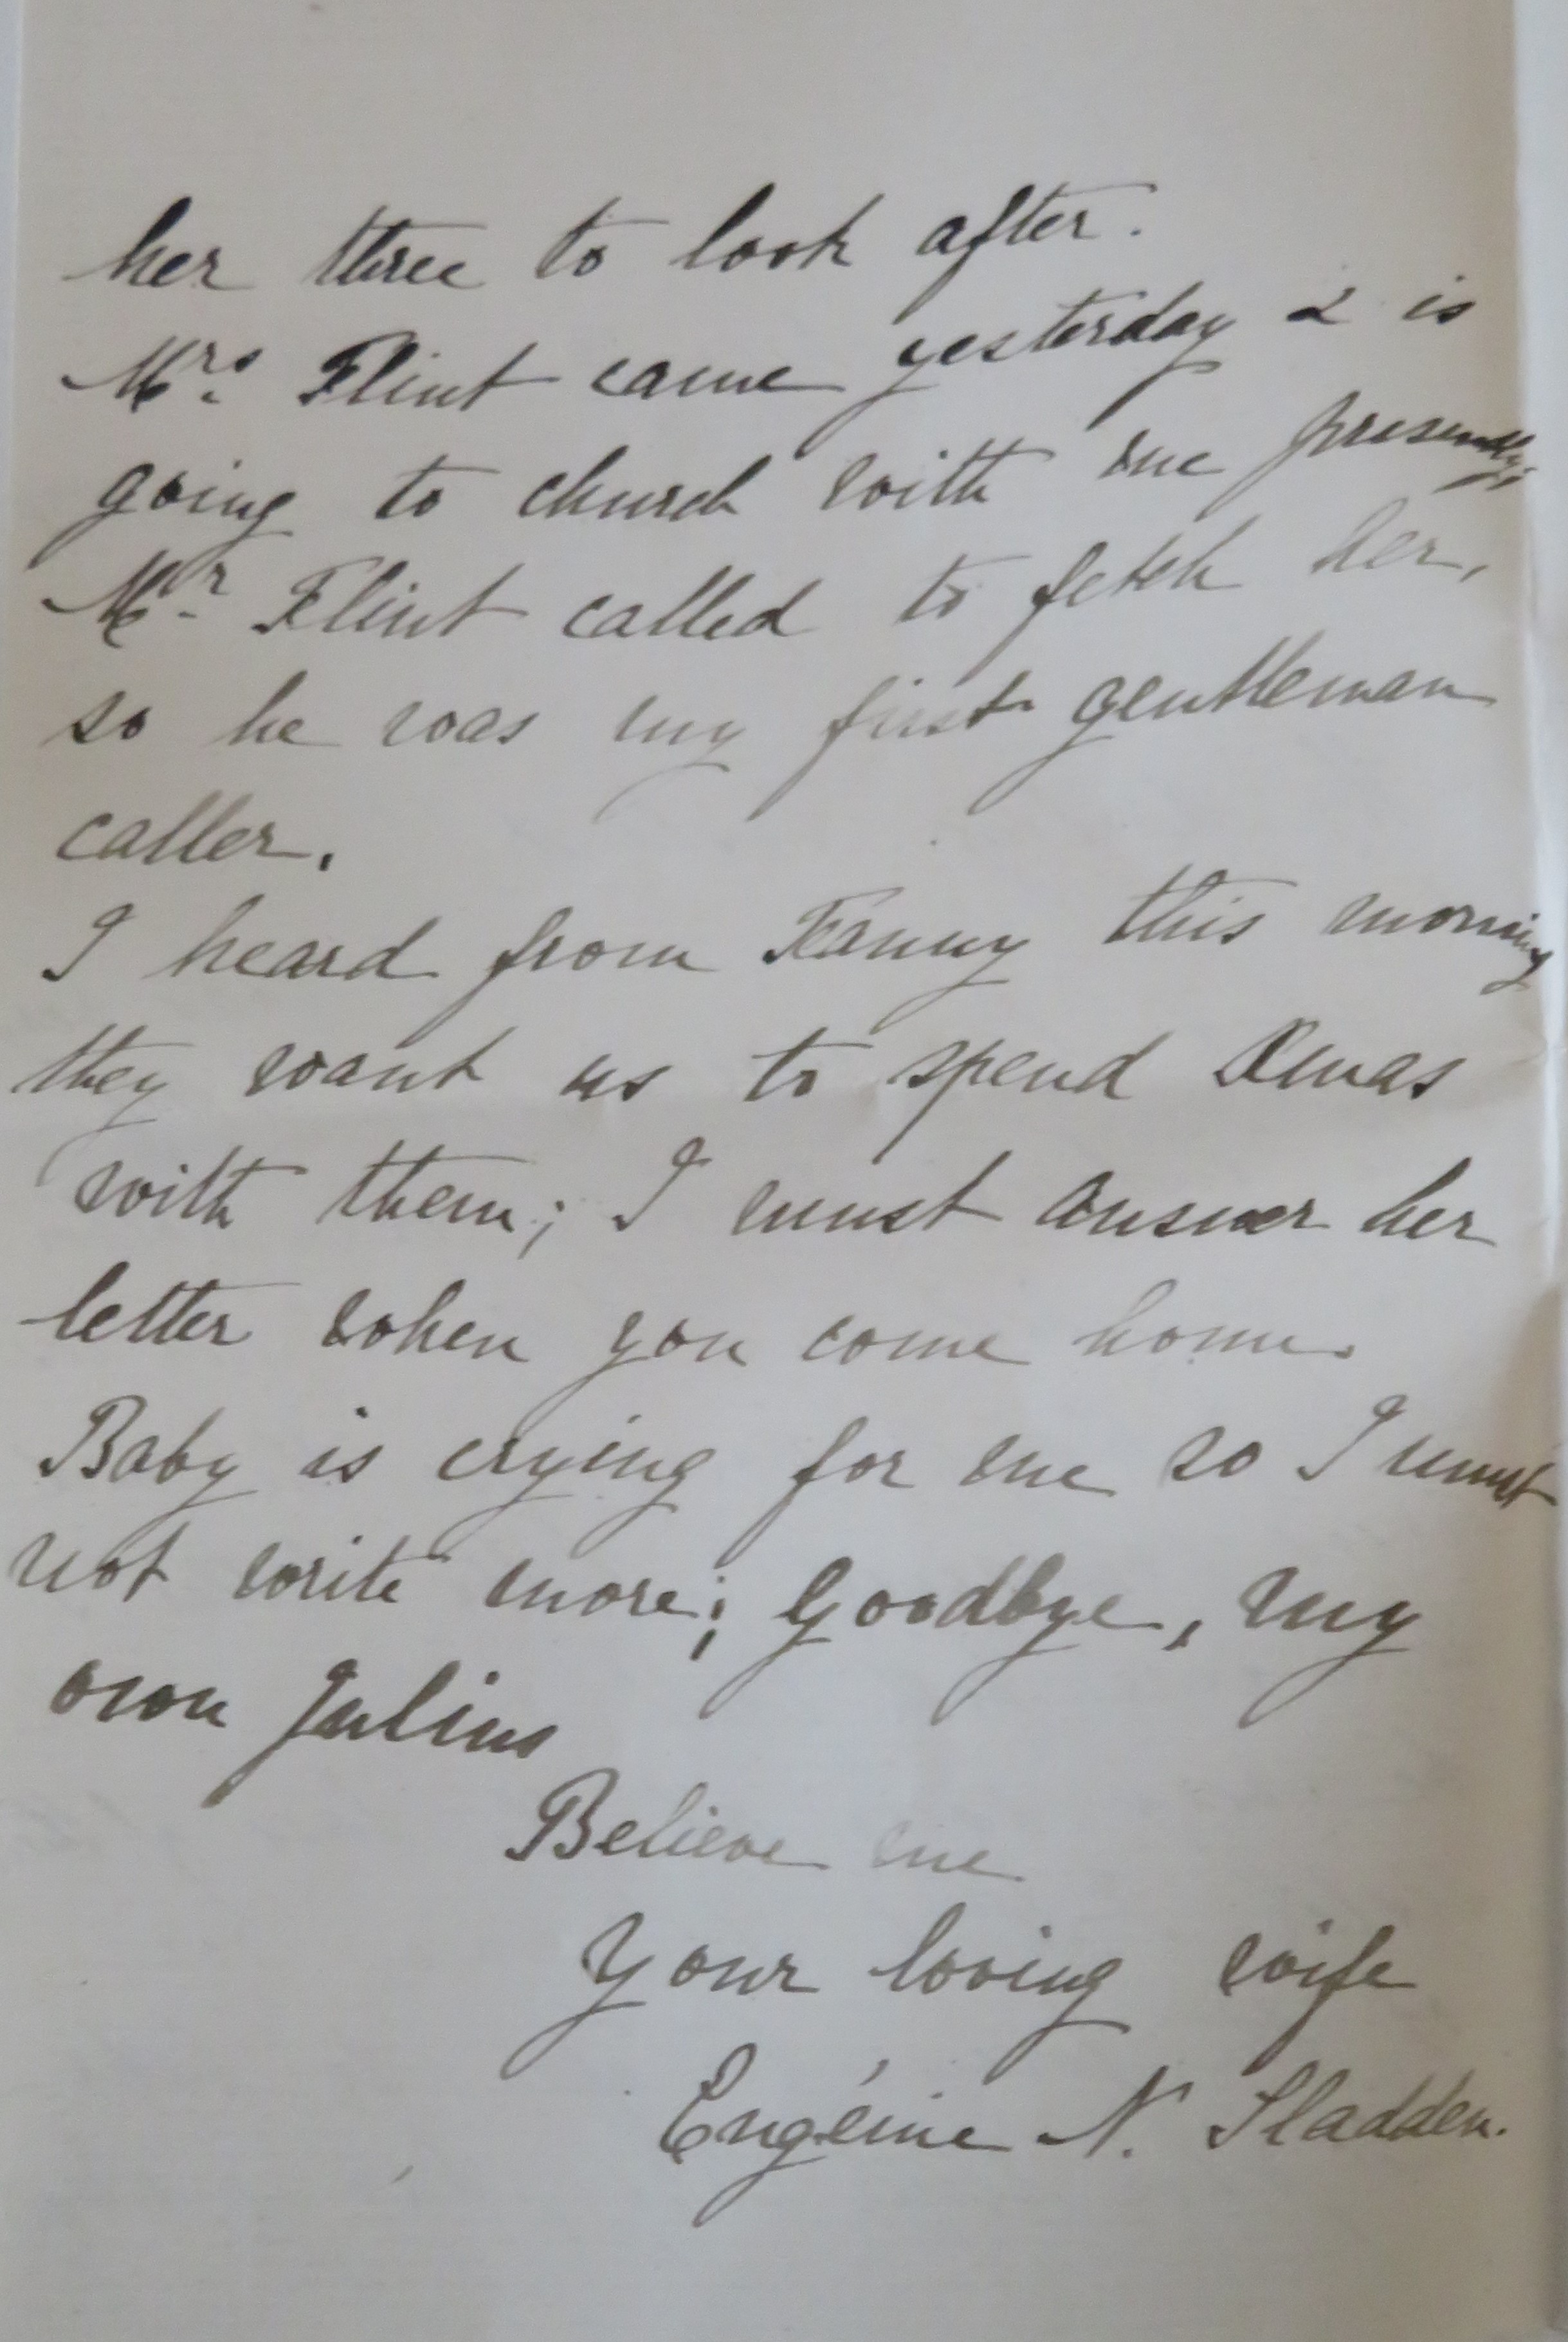 her three to look after.
Mrs. Flint came yesterday & is
going to church with me presently;
Mr. Flint called to fetch her,
so he was my first gentleman
caller.
I heard from Fanny this morning
they want us to spend Xmas
with them; I must answer her
letter when you come home.
Baby is crying for me so I must
not write more; Goodbye, my
own Julius
Believe me
Your loving wife
Eugénie N. Sladden.